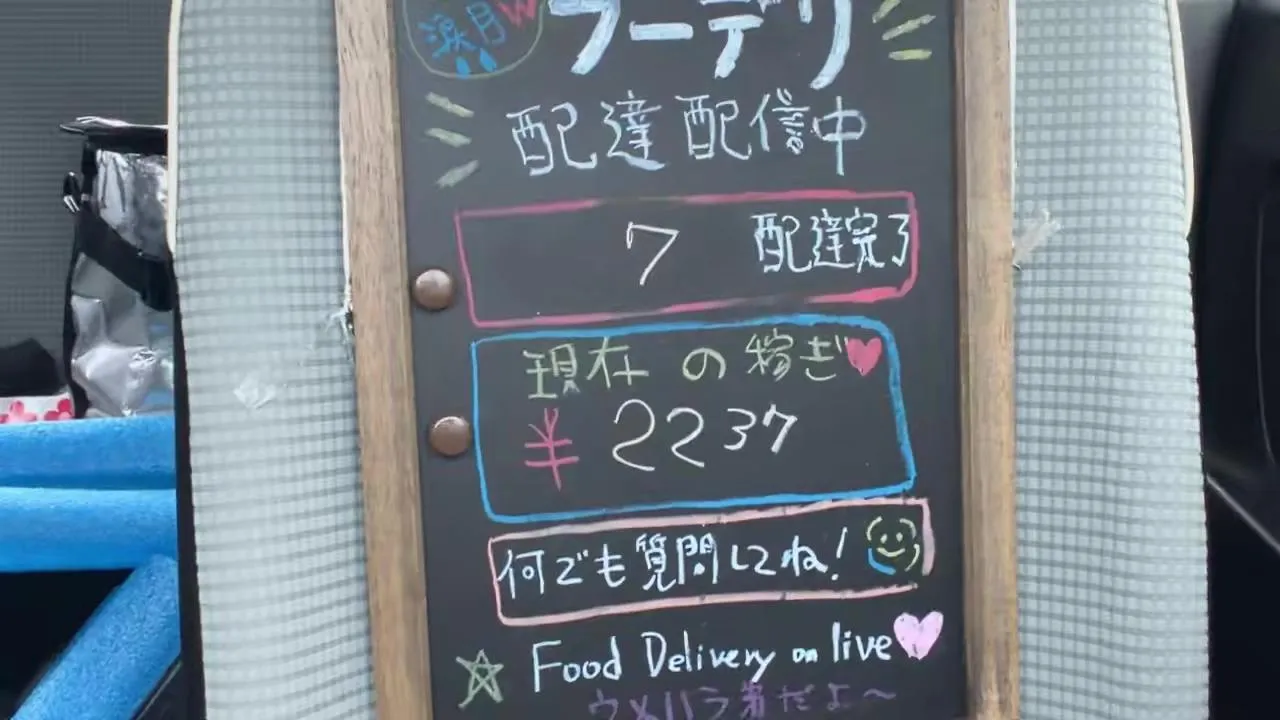 涙月W
フーデリ
配達配信中
7 配達完了
現在の稼ぎ
¥2237
何でも質問してね!
Food Delivery on live
ウメハラ第だよ〜